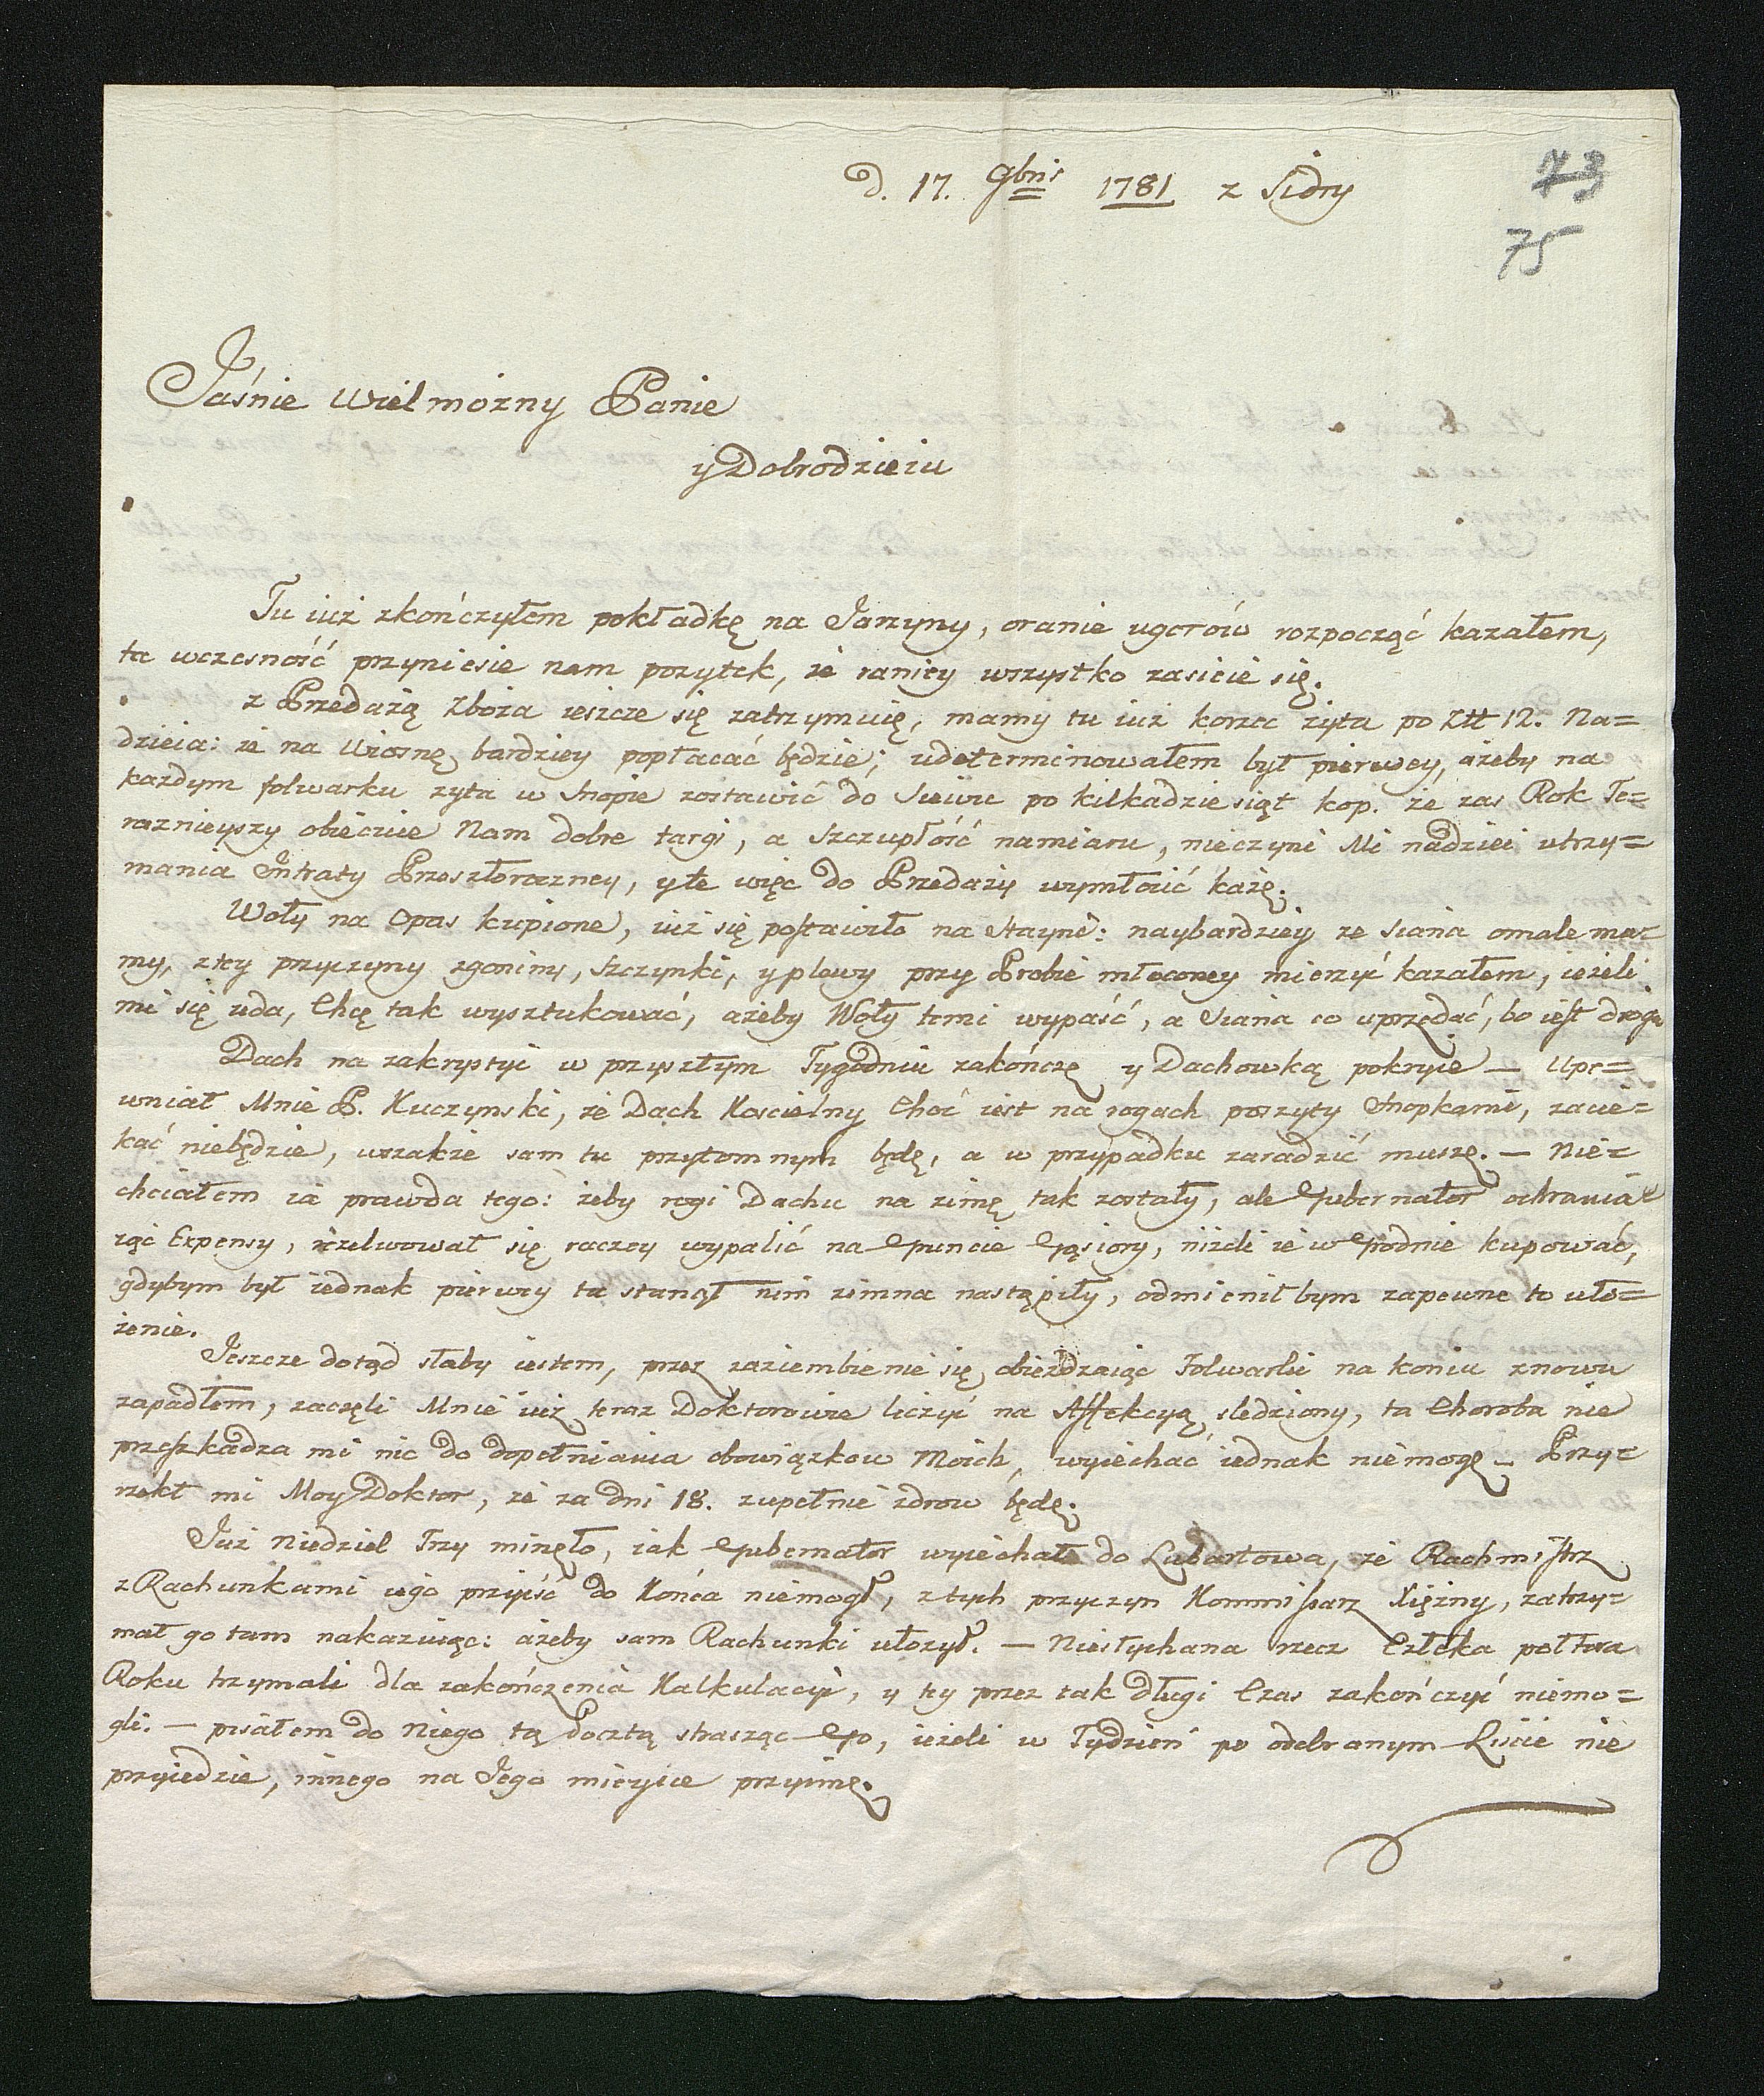 D. 17. 9bris 1781 z Sidry
73
75
Jaśnie Wielmożny Panie
y Dobrodzieiu
Tu iuż zkończyłem pokładkę na Jarzyny, oranie ugorów rozpocząć kazałem,
ta wczesność przyniesie nam pozytek, że raniey wszystko zasieie się.
z Przedażą Zboża ieszcze się zatrzymuię, mamy tu iuż korzec żyta po Ztł 12. Na=
dzieia: że na Wiosnę bardziey popłacać będzie; udeterminowałem był pierwey, ażeby na
każdym folwarku zyta w Snopie zostawić do Siewu po kilkadziesiąt kop. że zas Rok Te=
raznieyszy obiecuie Nam dobre targi, a Szczupłość namiaru, nieczyni Mi nadziei utrzy=
mania Intraty Przeszłoroczney, y te więc do Przedaży wymłócić każę.
Woły na Opas kupione, iuż się postawiło na Staynę: naybardziey ze Siana omale ma=
my, z tey przyczyny zgoniny, Szczynki, y plewy przy Probie młoconey mierzyć kazałem, ieżeli
mi się uda, Chcę tak wysztukować, ażeby Woły temi wypaść, a Siana co uprzedać, bo iest drogie
Dach na zakrystyi w przyszłym Tygodniu zakończę y Dachowką pokryie — Upe=
wniał Mnie P. Kuczynski, że Dach Koscielny Choć iest na rogach poszyty Snopkami, zacie=
kać niebędzie, wszakże sam tu przytomnym będę, a w przypadku zaradzić muszę. — Nie=
chciałem ia prawda tego: żeby rogi Dachu na zimę tak zostały, ale Gubernator ochrania=
iąc Expensy, rezelwował się raczey wypalić na Gruncie Gąsiory, niżeli ie w Grodnie kupować,
gdybym był iednak pierwey tu stanął nim zimna nastąpiły, odmieniłbym zapewne to uło=
żenie.
Jeszcze dotąd słaby iestem, przez zaziembienie się obieżdzaiąc Folwarki na koniu znowu
zapadłem, zaczęli Mnie iuż teraz Doktorowie liczyć na Affekcyą sledziony, ta Choroba nie
przeszkadza mi nic do dopełniania obowiązkow Moich, wyiechać iednak niemogę — Przy=
rzekł mi Moy Doktor, że za dni 18. zupełnie zdrow będę.
Już Niedziel Trzy minęło, iak Gubernator wyiechał do Lubartowa, że Rachmistrz
z Rachunkami iego przyiść do Końca niemogł, z tych przyczyn Kommissarz Xiężny, zatrzy=
mał go tam nakazuiąc: ażeby sam Rachunki ułożył. — Niesłychana rzecz Człeka połtora
Roku trzymali dla zakończenia Kalkulacyi, y tey przez tak długi Czas zakończyć niemo=
gli. — pisałem do Niego tą Pocztą strasząc Go, ieżeli w Tydzień po odebranym Liście nie
przyiedzie, innego na Jego mieysce przyimę.